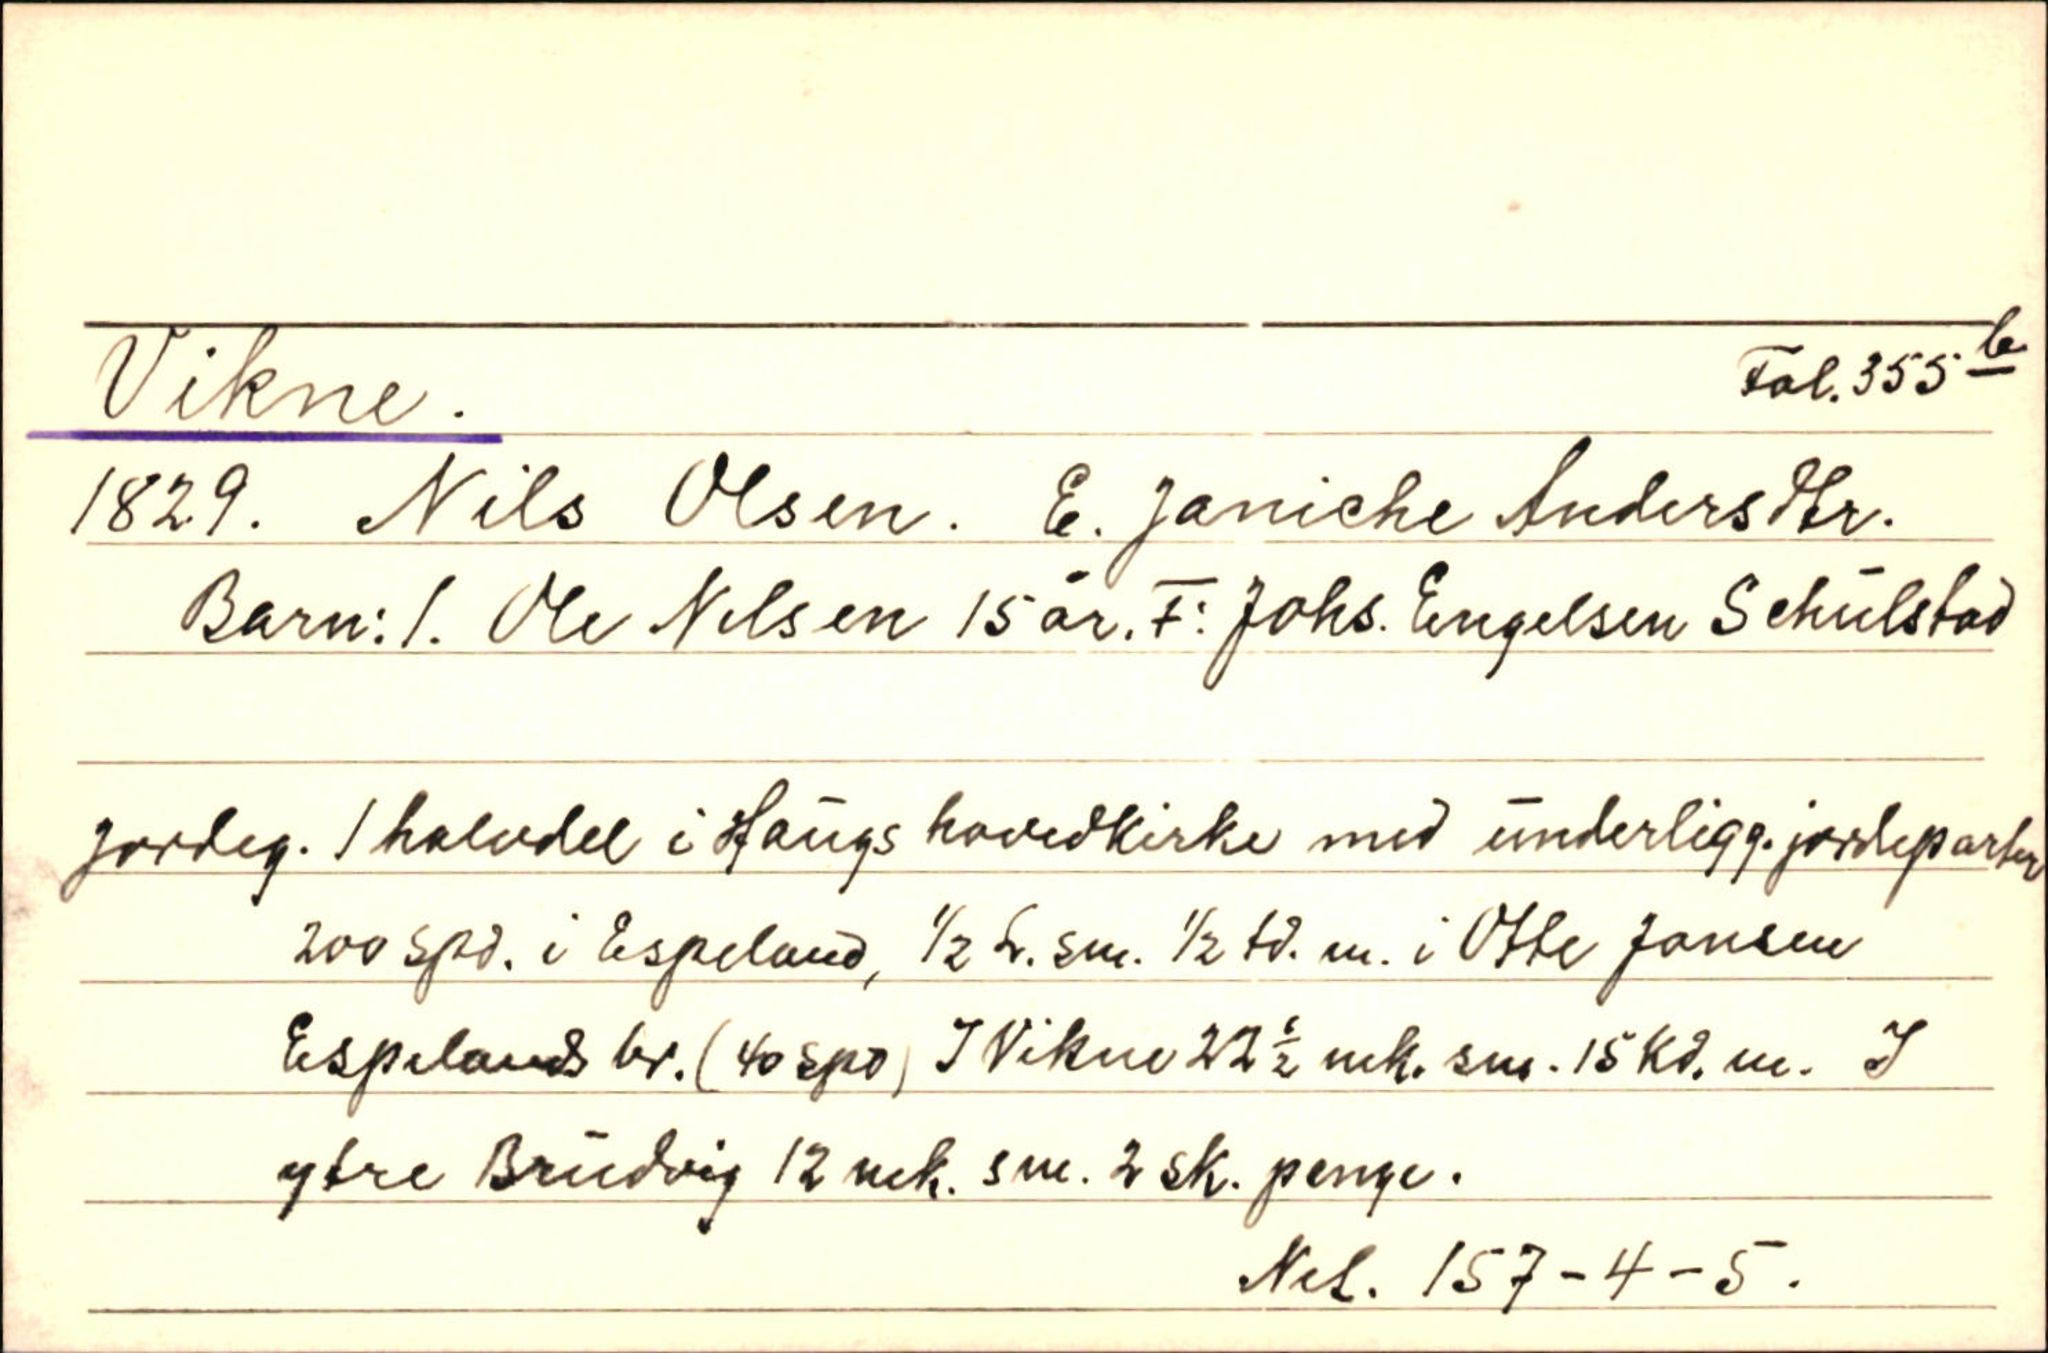 Vikne.
Fol. 355 b
1829. Nils Olsen. E. Janiche Andersdtr.
Barn: 1. Ole Nilsen 15 år. F: Johs. Engelsen Schulstad
Jordeg. 1 halvdel i Haugs hovedkirke med underligg. jordeparter
200 spd. i Espeland, 1/2 L. sm. 1/2 td. m. i Otte Jansen
Espelands br. (40 spd) I Vikne 22 1/2 mk. sm. 15 kd. m. I
ytre Brudvig 12 mk. sm. 2 sk. penge.
Net. 157-4-5.